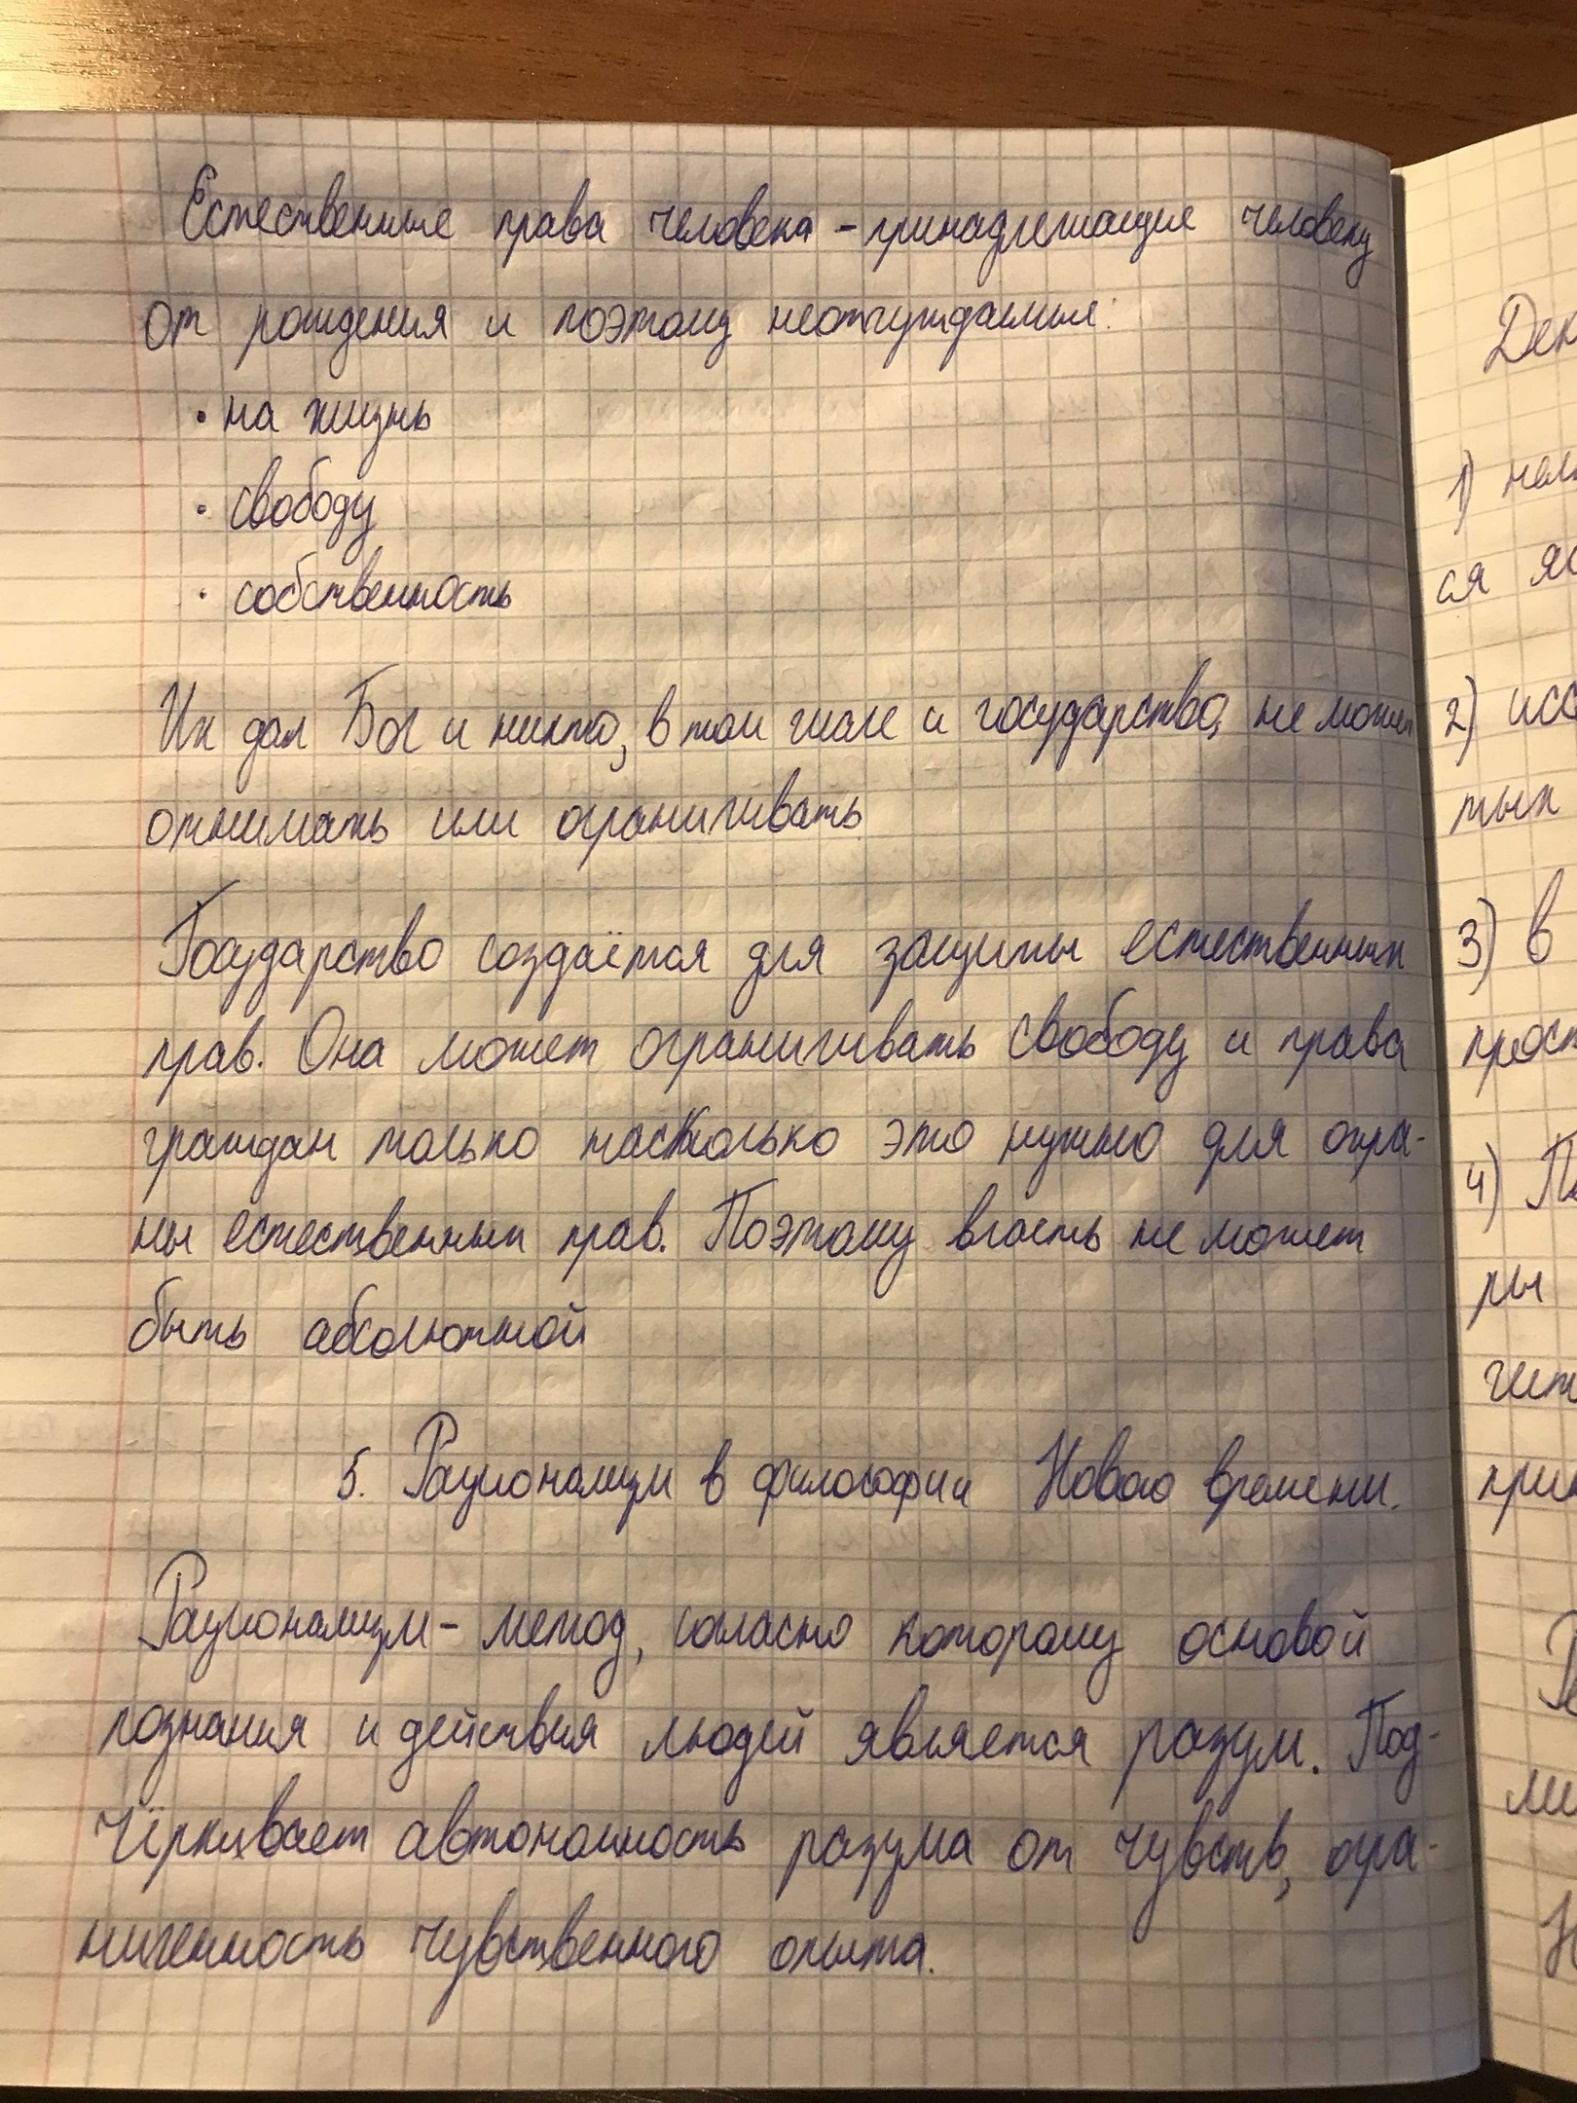 Естественные права человека - принадлежащие человеку
от рождения и поэтому неотчуждаемые:
· на жизнь
· свободу
· собственность
Их дал Бог и никто, в том числе и государство, не может
отнимать или ограничивать
Государство создаётся для защиты естественных
прав. Она может ограничивать свободу и права
граждан только насколько это нужно для охра-
ны естественных прав. Поэтому власть не может
быть абсолютной
5. Рационализм в философии Нового времени.
Рационализм - метод, согласно которому основой
познания и действия людей является разум. Под-
чёркивает автономность разума от чувств, огра-
ниченность чувственного опыта.
Дек
1)
ся
2) исс
тых
3) в
прост
4) П
ры
чит
при